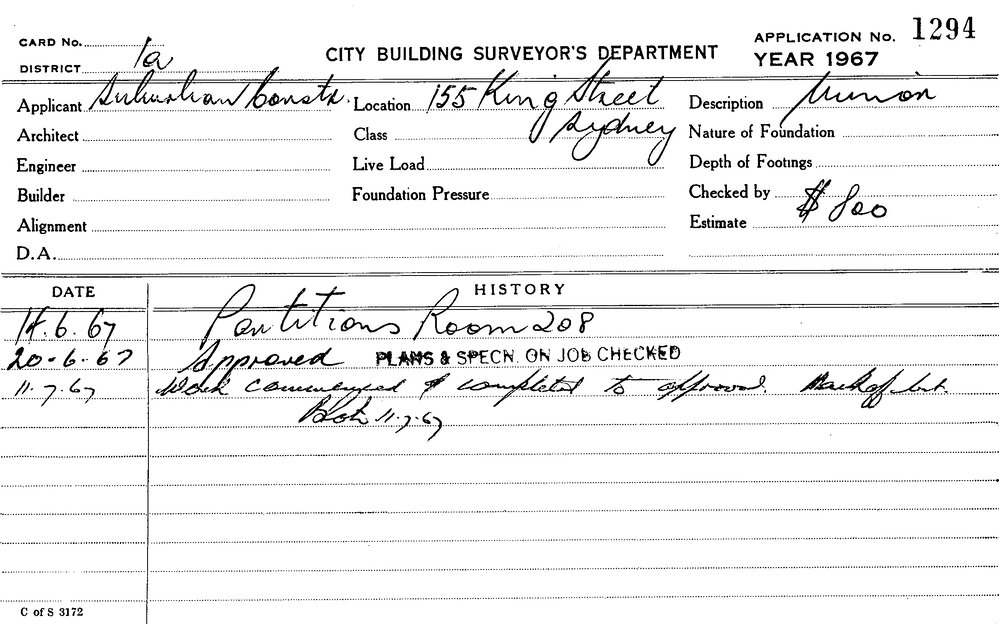 CARD No.
DISTRICT 1a
CITY BUILDING SURVEYOR'S DEPARTMENT
APPLICATION No. 1294
YEAR 1967
Applicant Suburban Constr.
Location 155 King Street
Sydney
Description Minor
Architect
Class
Nature of Foundation
Engineer
Live Load
Depth of Footings
Builder
Foundation Pressure
Checked by
Alignment
Estimate $800
D.A.
DATE HISTORY
14.6.67 Partitions Room 208
20-6-67 Approved PLANS & SPECN. ON JOB CHECKED
11.7.67 Work commenced & completed to approval. Mark off
11.7.67
C of S 3172